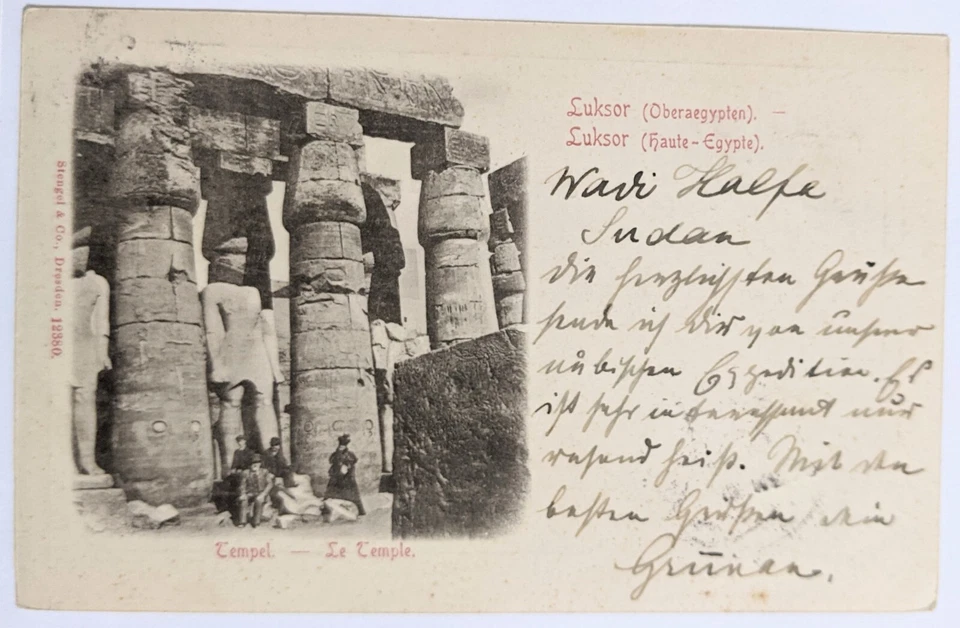 Luksor (Oberaegypten). —
Luksor (Haute-Egypte).
Wadi Halfa
Sudan
Die herzlichsten Grüße
sende ich Dir von unserer
nubischen Expedition. Es
ist sehr interessant nur
rasend heiß. Mit den
besten Grüßen dein
Stengel & Co., Dresden. 12380.
Tempel. — Le Temple.